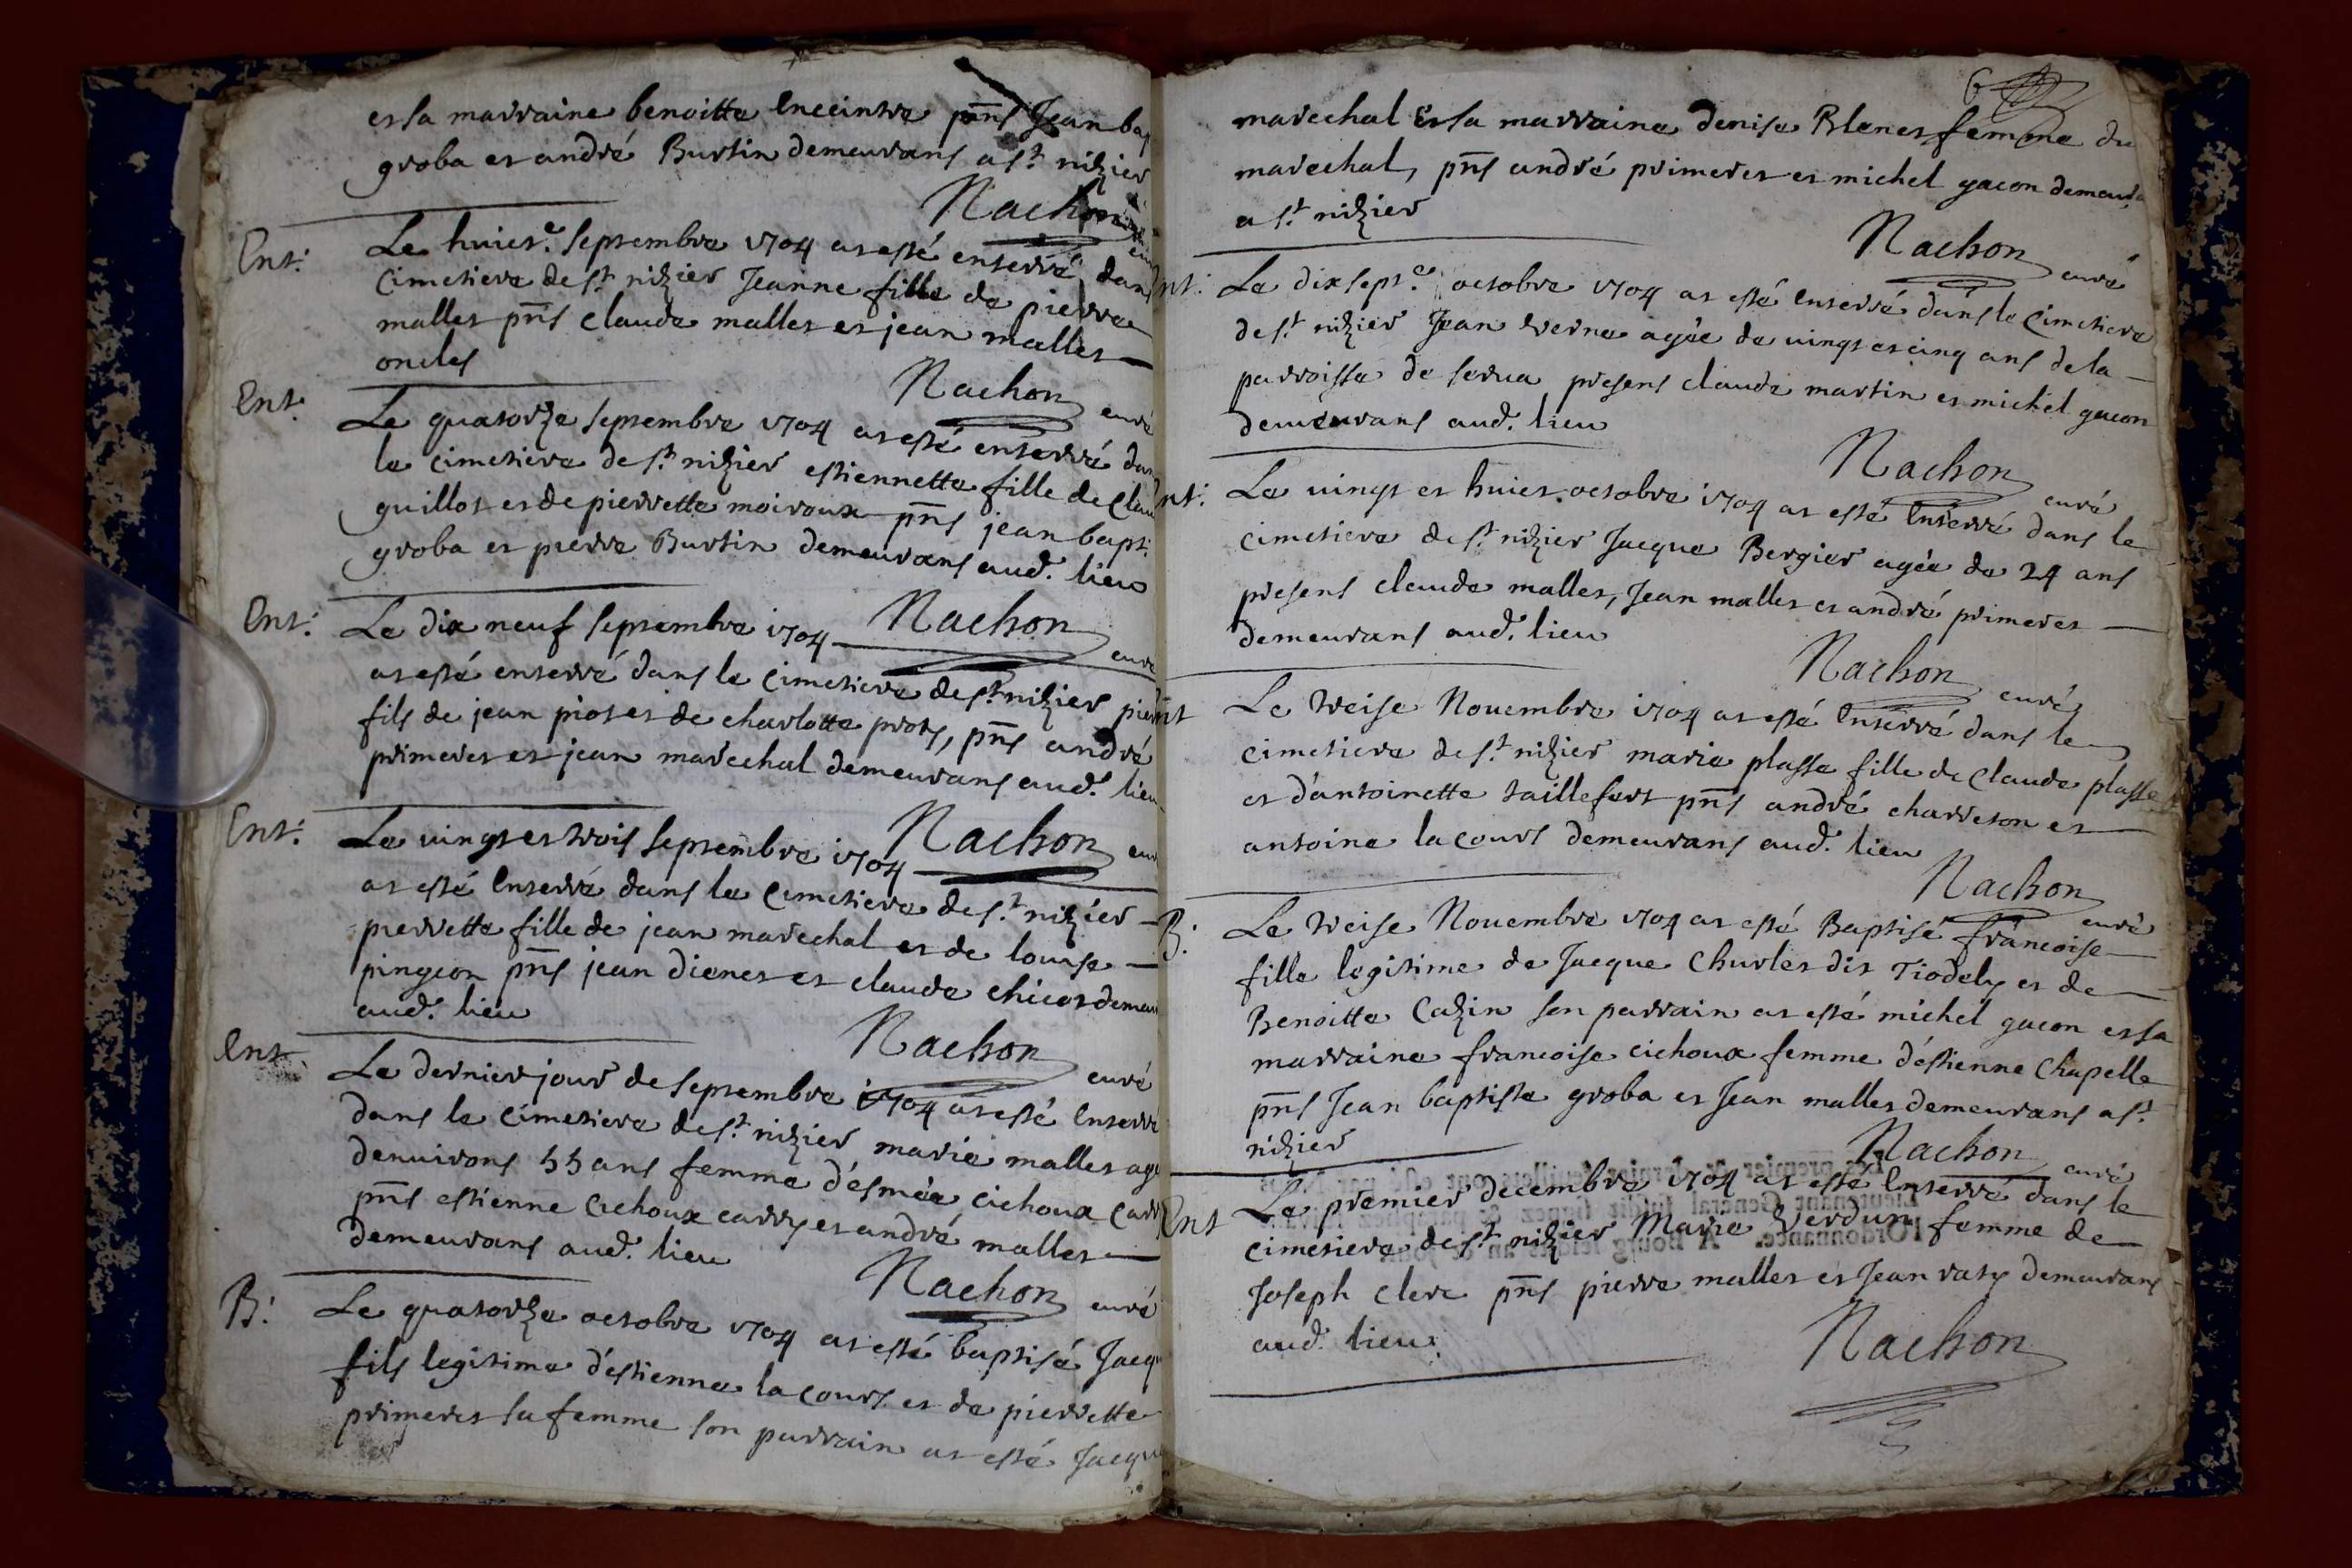 et sa marraine benoitte Enceintre pñs Jean bap
groba et andré Burtin demeurans a st nizier
Nachon
Ent: Le huict.e septembre 1704 at esté enterré dans
cimetiere de st nizier Jeanne fille de pierre
mallet pñs claude mallet et jean mallet
oncles
Nachon curé
Ent: Le quatorze septembre 1704 at esté enterré dan
le cimetiere de st nizier estiennette fille de clau
guillot et de pierrette moiroux pñs jean bapt:
groba et pierre Burtin demeurans aud. lieu
Nachon curé
Ent: Le dix neuf septembre 1704
at esté enterré dans le cimetiere de st nizier pier
fils de jean piot et de charlotte prost, pñs andré
primeret et jean marechal demeurans aud. lieu
Nachon cur
Ent: Le vingt et trois septembre 1704
at esté Enterré dans le cimetiere de st nizier
pierrette fille de jean marechal et de louise
pingeon pñs jean dienet et claude chicot demeu
aud. lieu
Nachon curé
Ent Le dernier jour de septembre 1704 at esté Enterré
dans le cimetiere de st nizier marie mallet agé
denvirons 55 ans femme d'esmée cichoux carr
pñs estienne cichoux carry et andré mallet
demeurans aud. lieu
Nachon curé
B: Le quatorze octobre 1704 at esté baptisé Jacqu
fils legitime d'estienne la court et de pierrette
primeret sa femme son parrain at esté Jacque
6
marechal Et sa marraine denise Blanet femme du
marechal, pñs andré primeret et michel gacon demeura
a st nizier
Nachon curé
nt: Le dix sept.e octobre 1704 at esté Enterré dans le cimetiere
de st nizier Jean verne agée de vingt et cinq ans de la
parroisse de serva presens claude martin et michel gacon
demeurans aud. lieu
Nachon curé
nt: Le vingt et huict octobre 1704 at esté Enterré dans le
cimetiere de st nizier Jacque Bergier agée de 24 ans
presens claude mallet, Jean mallet et andré primeret
demeurans aud. lieu
Nachon curé
nt Le treise Novembre 1704 at esté Enterré dans le
cimetiere de st nizier marie plasse fille de claude plasse
et d'antoinette taillefert pñs andré charreton et
antoine la court demeurans aud. lieu
Nachon curé
B: Le treise Novembre 1704 at esté Baptisé francoise
fille legitime de Jacque Churlet dit Tiodely et de
Benoitte Cazin son parrain at esté michel gacon et sa
marraine francoise cichoux femme d'estienne Chapelle
pñs Jean baptiste groba et Jean mallet demeurans a st
nizier
Nachon curé
Ent Le premier decembre 1704 at esté Enterré dans le
cimetiere de st nizier Marie Verdun femme de
Joseph clerc pñs pierre mallet et Jean raty demeurans
aud. lieu
Nachon